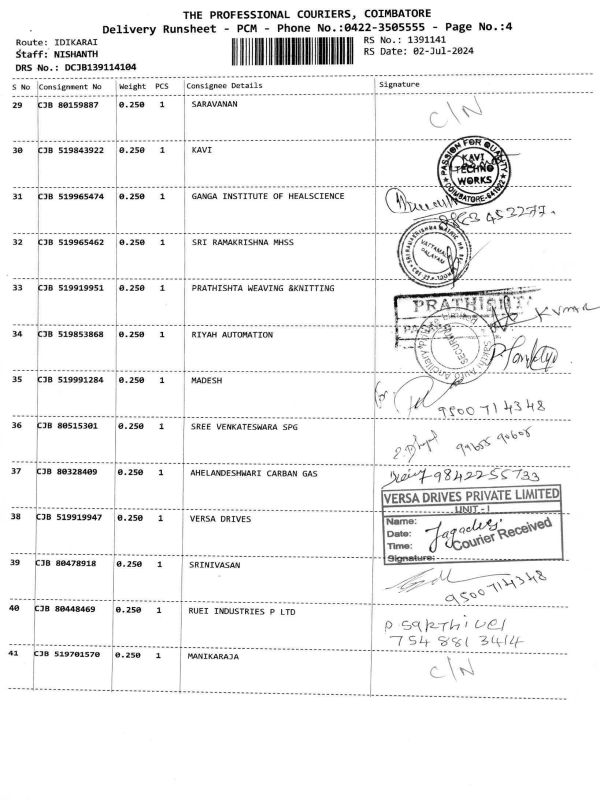 THE PROFESSIONAL COURIERS, COIMBATORE
Delivery Runsheet - PCM - Phone No.:0422-3505555 - Page No.:4
Route: IDIKARAI
RS No.: 1391141
Staff: NISHANTH
RS Date: 02-Jul-2024
DRS No.: DCJB139114104
S No Consignment No Weight PCS Consignee Details Signature
29 CJB 80159887 0.250 1 SARAVANAN C/N
30 CJB 519843922 0.250 1 KAVI
PASSION FOR QUALITY
KAVI
TECHNO
WORKS
COIMBATORE-641022
31 CJB 519965474 0.250 1 GANGA INSTITUTE OF HEALSCIENCE
32 CJB 519965462 0.250 1 SRI RAMAKRISHNA MHSS
33 CJB 519919951 0.250 1 PRATHISHTA WEAVING &KNITTING
PRATHISHTA
KUMAR
34 CJB 519853868 0.250 1 RIYAH AUTOMATION
SECURITY
35 CJB 519991284 0.250 1 MADESH
9500714348
36 CJB 80515301 0.250 1 SREE VENKATESWARA SPG
37 CJB 80328409 0.250 1 AHELANDESHWARI CARBAN GAS
9842255733
VERSA DRIVES PRIVATE LIMITED
UNIT - I
38 CJB 519919947 0.250 1 VERSA DRIVES
Name:
Date:
Time:
Signature:
Courier Received
39 CJB 80478918 0.250 1 SRINIVASAN
9500714348
40 CJB 80448469 0.250 1 RUEI INDUSTRIES P LTD
P SaRThivel
754 881 3414
41 CJB 519701570 0.250 1 MANIKARAJA C/N